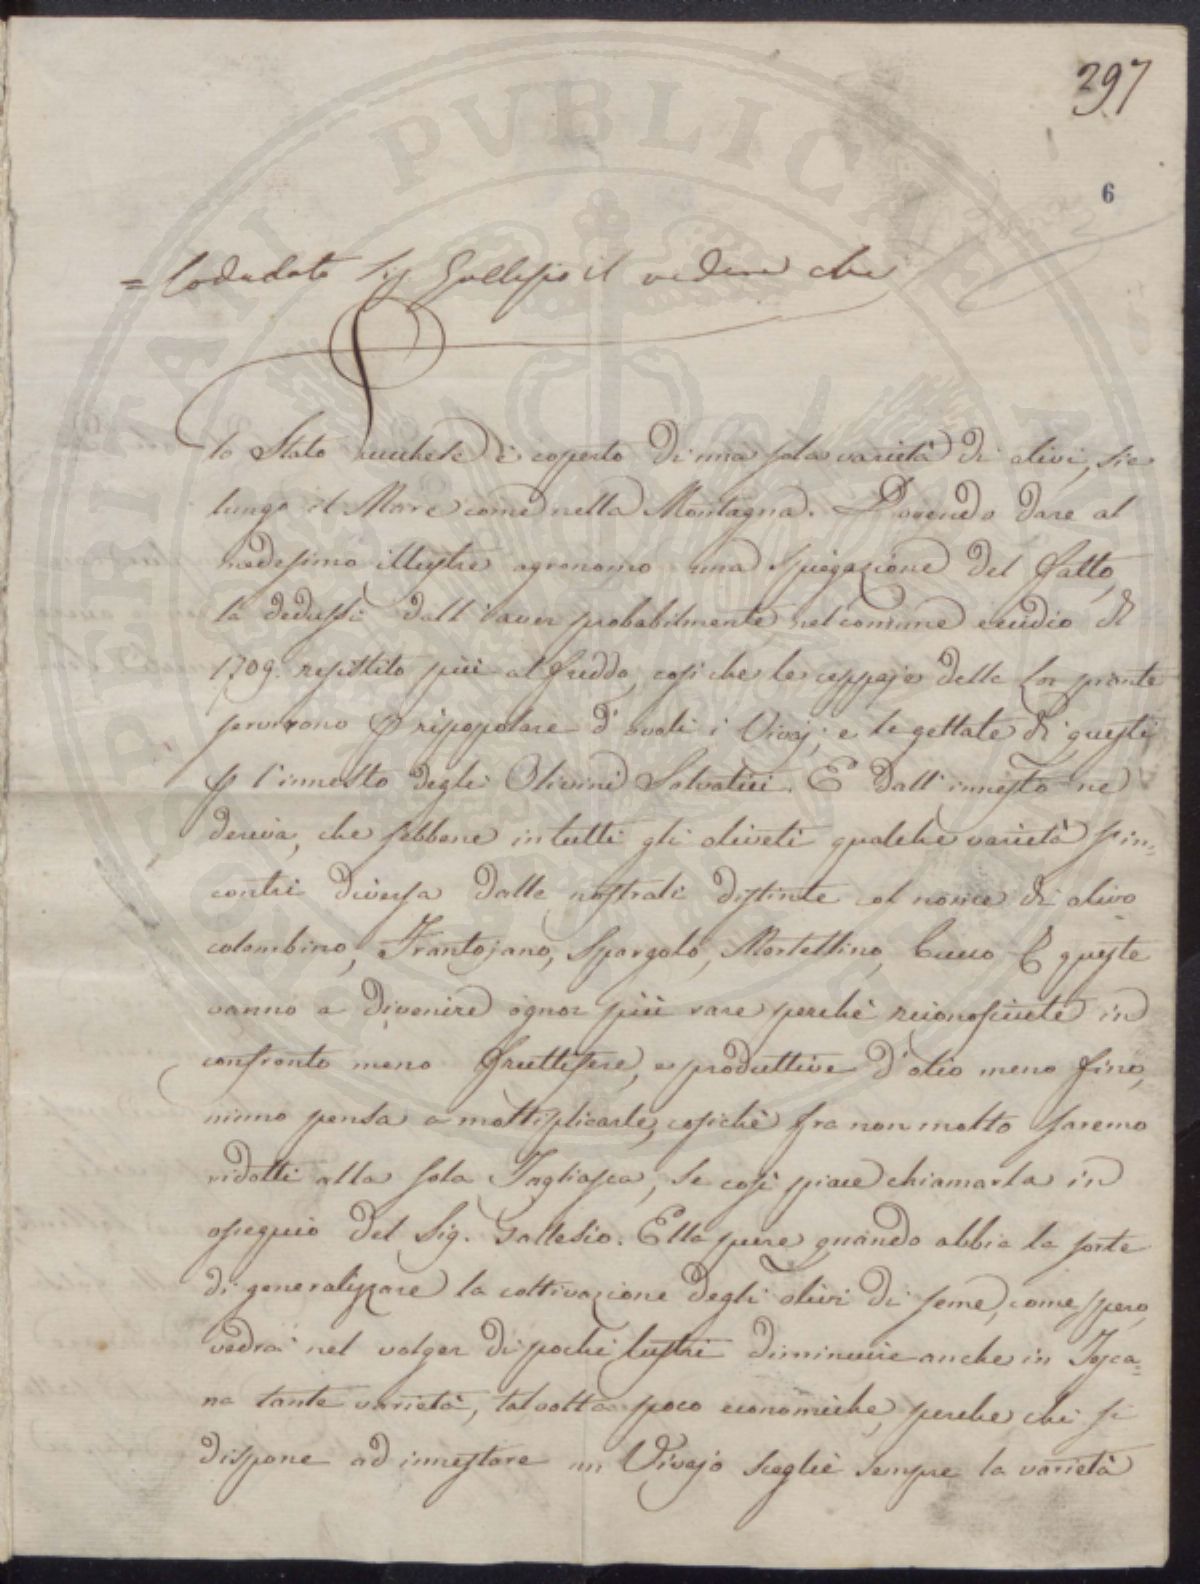 297
6
= lodadato Sig. Gallesio il vedere che
lo Stato Lucchese è coperto di una sola varietà di olivi, sie
lungo il Mare come nella Montagna. Dovendo dare al
medesimo illustre agronomo una spiegazione del fatto,
la dedussi dall'aver probabilmente nel comune eccidio di
1709. resistito più al freddo, così che le ceppaje delle lor piante
servirono p ripopolare d'ovoli i Vivaj; e le gettate di questi
p l'innesto degli Olivini Salvatici. E dall'innesto ne
deriva, che sebbene in tutti gli oliveti qualche varietà s'in=
contri diversa dalle nostrali distinte col nome di olivo
colombino, Frantojano, Spargolo, Mortellino, Cucco &c queste
vanno a divenire ognor più rare perchè riconosciute in
confronto meno fruttifere, e produttive d'olio meno fino,
niuno pensa a moltiplicarle, cosichè fra non molto saremo
ridotti alla sola Tagliasca, se così piace chiamarla in
ossequio del Sig. Gallesio. Ella pure quando abbia la sorte
di generalizzare la coltivazione degli olivi di seme, come spero,
vedrà nel volger di pochi lustri diminuire anche in Tosca=
na tante varietà, talvolta poco economiche, perche chi si
dispone ad innestare un Vivajo sceglie sempre la varietà
PERITATI PVBLICAE